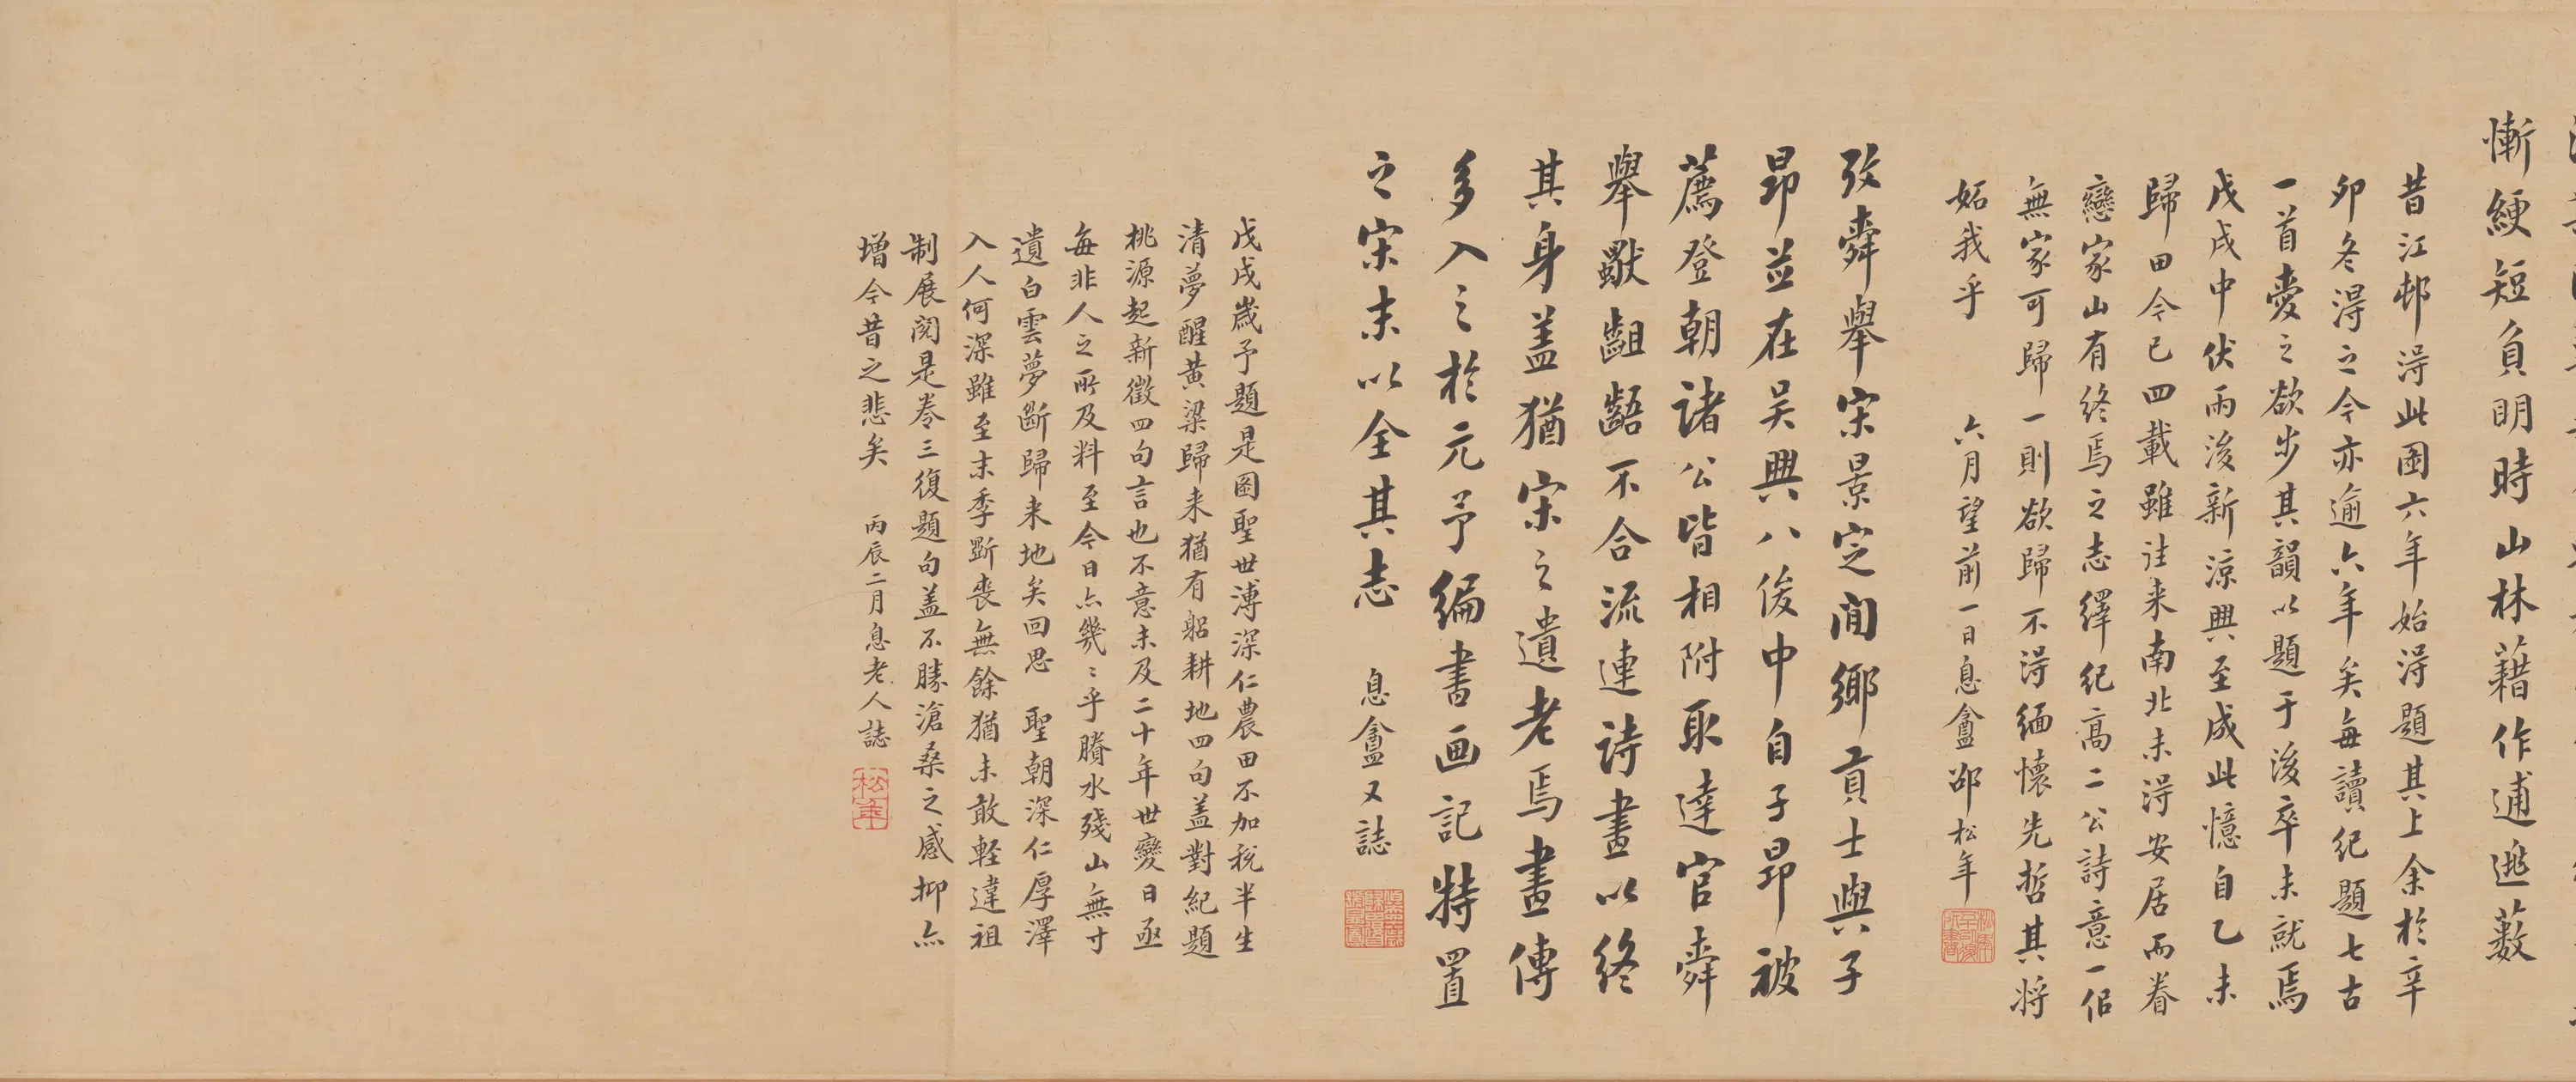 慚綆短負明時山林藉作逋逃藪
昔江邨得此圖六年始得題其上余於辛
卯冬得之今亦逾六年矣每讀紀題七古
一首愛之欲步其韻以題于後卒未就焉
戊戌中伏雨後新涼興至成此憶自乙未
歸田今已四載雖往来南北未得安居而眷
戀家山有終焉之志繹紀高二公詩意一佀
無家可歸一則欲歸不得緬懷先哲其將
妬我乎 六月望前一日息盦邵松年
攷舜舉宋景定間鄉貢士與子
昂並在吳興八俊中自子昂被
薦登朝諸公皆相附取達官舜
舉獸齟齬不合流連詩畫以終
其身盖猶宋之遺老焉畫傳
多入之於元予編書画記特置
之宋末以全其志 息盦又誌
戊戌歲予題是圖聖世溥深仁農田不加稅半生
清夢醒黃粱歸来猶有躬耕地四句盖對紀題
桃源起新徵四句言也不意未及二十年世變日亟
每非人之所及料至今日亦幾乎賸水殘山無寸
遺白雲夢斷歸来地矣回思 聖朝深仁厚澤
入人何深雖至末季斲喪無餘猶未敢輕違祖
制展閱是卷三復題句盖不勝滄桑之感抑亦
增今昔之悲矣 丙辰二月息老人誌
松年